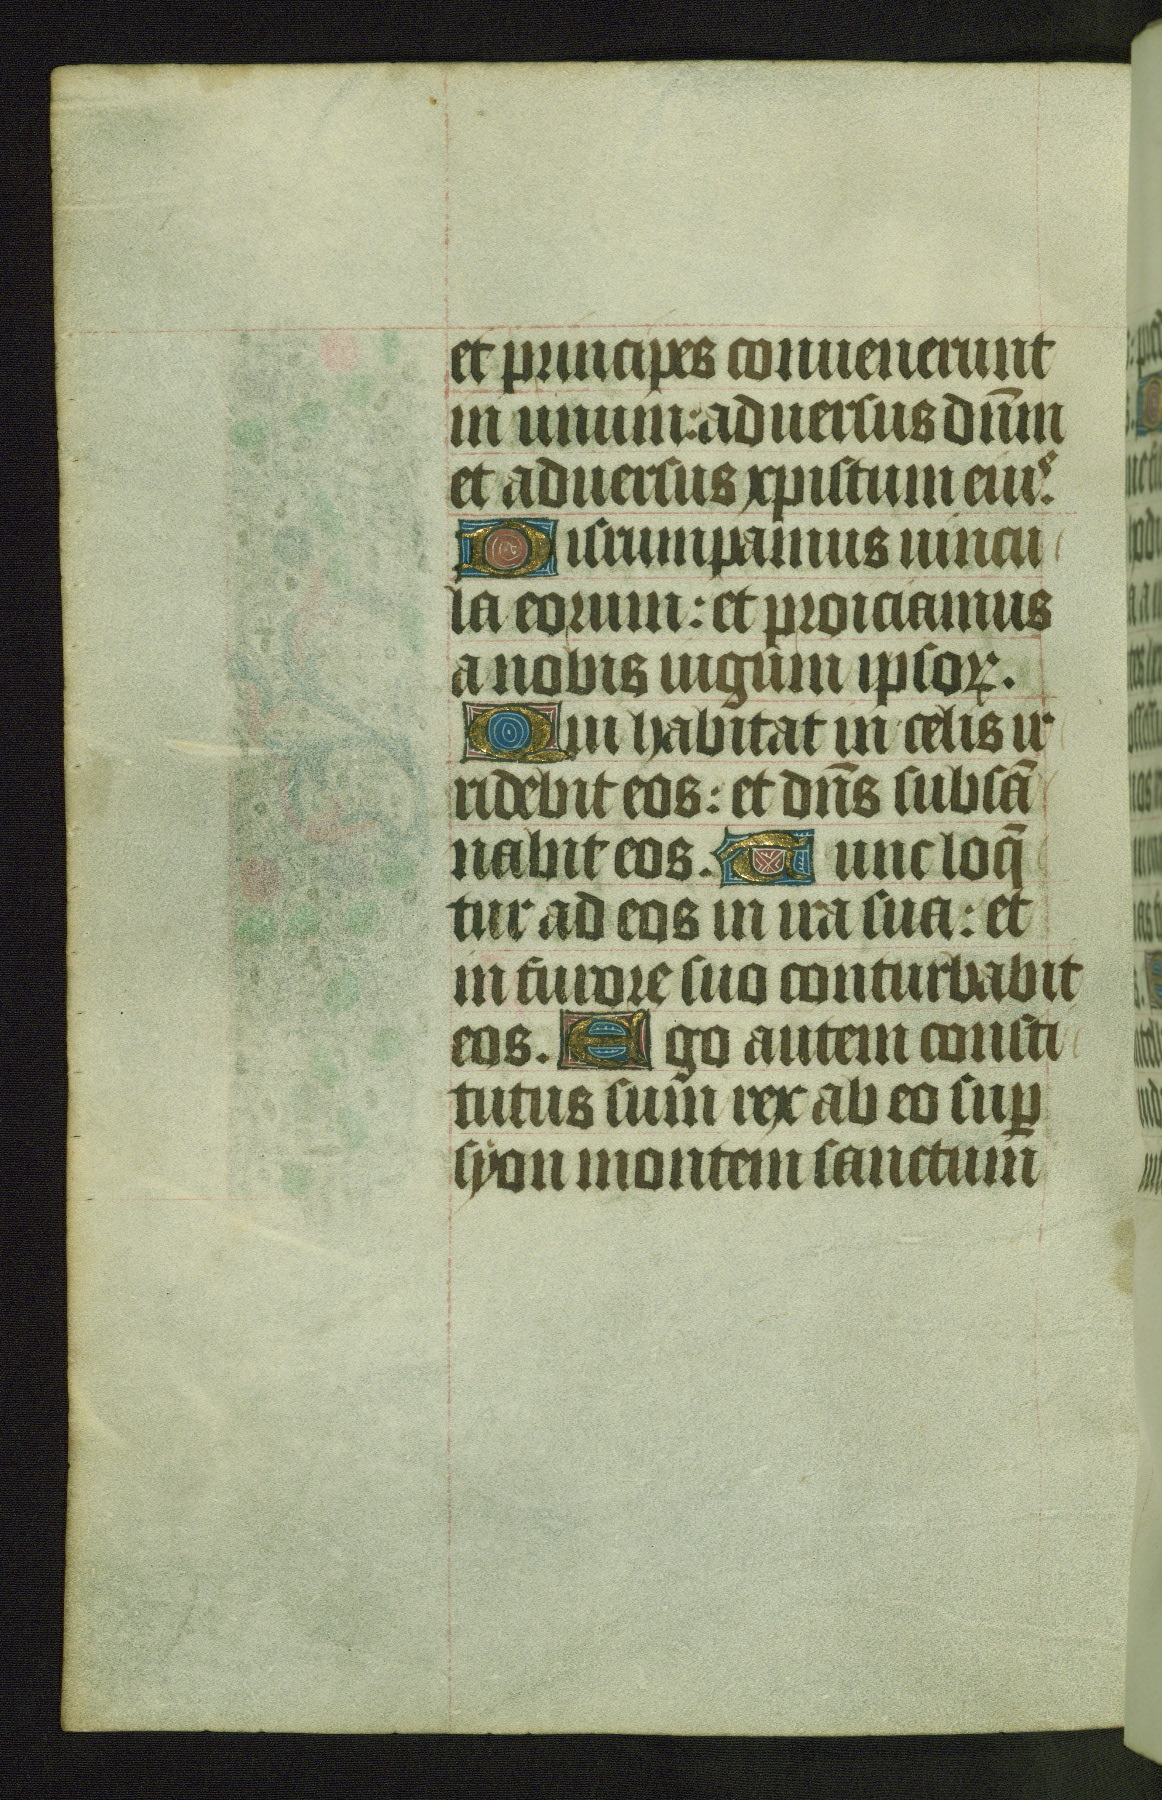 et principes conuenerunt
in unum: aduersus dn̄m
et aduersus xpistum eiuꝰ.
Disrumpamus uincu
la eorum: et proiciamus
a nobis iugum ipsoꝝ.
Qui habitat in celis ir
ridebit eos: et dn̄s subsā
nabit eos. Tunc loq̄
tur ad eos in ira sua: et
in furore suo conturbabit
eos. Ego autem consti
tutus sum rex ab eo suꝑ
syon montem sanctum